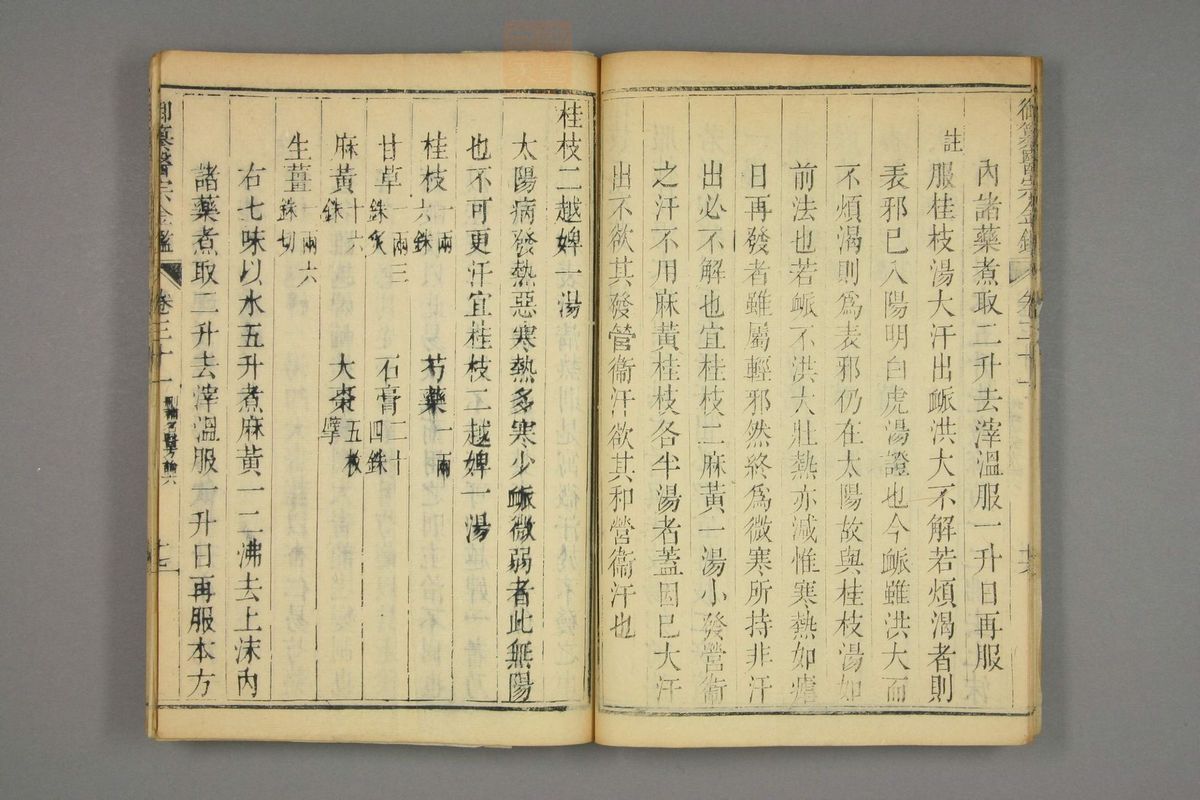 御篡醫宗金鑑 卷三十一 十六
內諸藥煮取二升去滓溫服一升日再服
註 服桂枝湯大汗出衇洪大不解若煩渴者則
表邪已入陽明白虎湯證也今衇雖洪大而
不煩渴則爲表邪仍在太陽故與桂枝湯如
前法也若衇不洪大壯熱亦减惟寒熱如瘧
日再發者雖屬輕邪然終爲微寒所持非汗
出必不解也宜桂枝二麻黃一湯小發營衞
之汗不用麻黃桂枝各半湯者蓋因已大汗
出不欲其發營衞汗欲其和營衞汗也
桂枝二越婢一湯
太陽病發熱惡寒熱多寒少衇微弱者此無陽
也不可更汗宜桂枝二越婢一湯
桂枝一兩六銖 芍藥一兩
甘草一兩三銖炙 石膏二十四銖
麻黃十六銖 大棗五枚擘
生薑一兩六銖切
右七味以水五升煮麻黃一二沸去上沫內
諸藥煮取二升去滓溫服一升日再服本方
御篡醫宗金鑑 卷三十一 十七